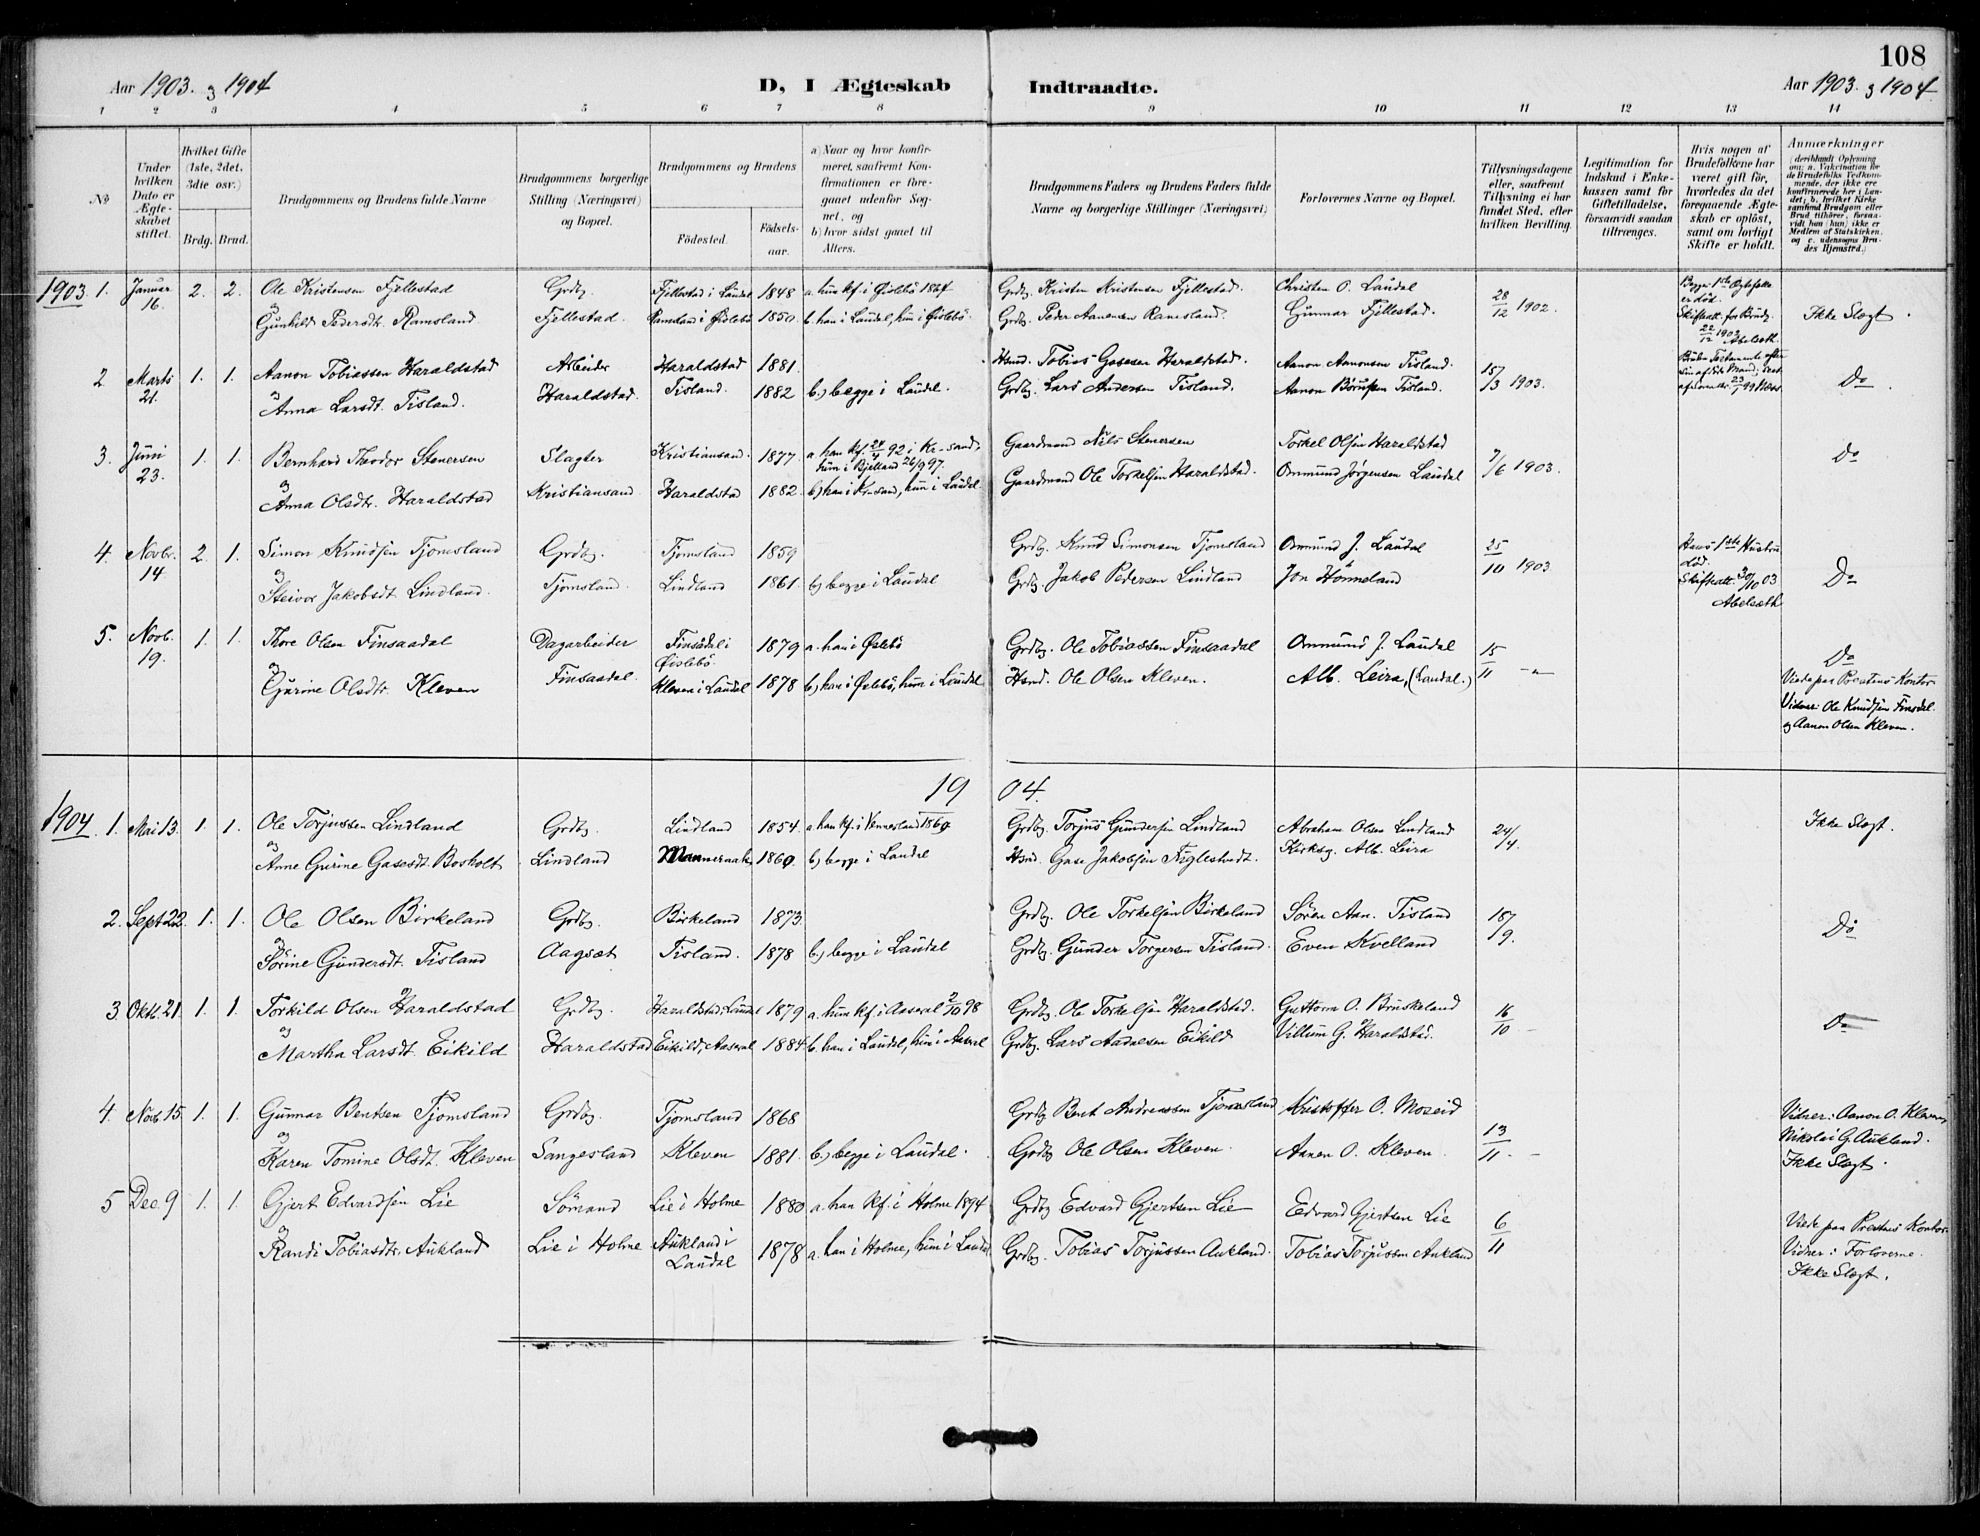 108
Aar 1903. og 1904
D, I Ægteskab Indtraadte.
Aar 1903. og 1904
1 2 3 4 5 6 7 8 9 10 11 12 13 14
No
Under hvilken Dato er Ægteskabet stiftet.
Hvilket Gifte (1ste, 2det, 3die osv.)
Brdg. Brud.
Brudgommens og Brudens fulde Navne
Brudgommens borgerlige Stilling (Næringsvei) og Bopæl.
Brudgommens og Brudens
Fødested.
Fødselsaar.
a) Naar og hvor konfirmeret, saafremt Konfirmationen er foregaaet udenfor Sognet, og
b) hvor sidst gaaet til Alters.
Brudgommens Faders og Brudens Faders fulde Navne og borgerlige Stillinger (Næringsvei)
Forlovernes Navne og Bopæl.
Tillysningsdagene eller, saafremt Tillysning ei har fundet Sted, efter hvilken Bevilling.
Legitimation for Indskud i Enkekassen samt for Giftetilladelse, forsaavidt saadan tiltrænges.
Hvis nogen af Brudefolkene har været gift før, hvorledes da det foregaaende Ægteskab er opløst, samt om lovligt Skifte er holdt.
Anmærkninger
(deriblandt Oplysning om: a. Vakcination for de Brudefolks Vedkommende, der ikke ere konfirmerede her i Landet; b. hvilket Kirkesamfund Brudgom eller Brud tilhører, forsaavidt han (hun) ikke er Medlem af Statskirken, og c. udensogns Brudes Hjemsted.)
1903. 1. Januar 16. 2. 2. Ole Kristensen Fjellestad Grdbg. Fjellestad i Laudal 1848 a. hun kf. i Øislebø 1864 Grdbg. Kristen Kristensen Fjellestad. Christen O. Laudal 28/12 1902. Ikke Slegt.
og Gunhild Pedersdt. Ramsland Fjellestad. Ramsland i Øislebø 1850. b. han i Laudal, hun i Øislebø. Grdbg. Peder Aanensen Ramsland. Gunnar Fjellestad.
Begge 1ste Ægtefelle er død. Skifteatt. for Brudg. 22/12 1902 Abelseth
2. Marts 21. 1. 1. Aanon Tobiassen Haraldstad Arbeider Haraldstad 1881. Hsmd. Tobias Gasesen Haraldstad. Aanon Aanonsen Tisland. 15/3 1903. Do.
og Anna Larsdt. Tisland. Haraldstad. Tisland. 1882 b.) begge i Laudal. Grdbg. Lars Andersen Tisland. Aanon Børufsen Tisland.
3. Juni 23. 1. 1. Bernhard Theodor Stenersen Slagter Kristiansand. 1877. a. han kf. 24/4 92 i Kr-sand, hun i Bjelland 26/9 97. Gaardmand Nils Stenersen Torkel Olsen Haraldstad 7/6 1903. Do
og Anna Olsdtr. Haraldstad Kristiansand Haraldstad 1882. b.) han i Kr-sand, hun i Laudal. Gaardmand Ole Torkelsen Haraldstad. Ommund Jørgensen Laudal
4. Novbr. 14. 2. 1. Simon Knudsen Tjomsland Grdbg. Tjomsland 1859 Grdbg. Knud Simonsen Tjomsland Ommund J. Laudal 25/10 1903 Hans 1ste Hustru død. Skifteatt. 30/10 03 Abelseth Do
og Steivor Jakobsdt. Lindland. Tjomsland. Lindland 1861. b.) begge i Laudal Grdbg. Jakob Pedersen Lindland Jon Hønneland
5. Novb. 19. 1. 1. Thore Olsen Finsaadal Dagarbeider Finsådal i Øislebø. 1879 a. han i Øslebø Grdbg. Ole Tobiassen Finsaadal Ommund J. Laudal 15/11 -"- Do
og Gurine Olsdtr. Kleven Finsaadal. Kleven i Laudal 1878 b.) han i Øslebø, hun i Laudal Hsmd. Ole Olsen Kleven. Alb. Leira, (Laudal.)
Viede paa Prestens Kontor
Vidner: Ole Knudsen Finsdal.
og Aanon Olsen Kleven.
1904.
1904. 1. Mai 13. 1. 1. Ole Torjussen Lindland Grdbg. Lindland 1854. a. han kf. i Vennesland 1869 Grdbg. Torjus Gundersen Lindland Abraham Olsen Lindland 24/4. Ikke Slegt.
og Anne Gurine Gasesdt. Bosholt Lindland 1860. b.) begge i Laudal Hsmd. Gase Jakobsen Fuglestvedt. Kirksg. Alb. Leira
2. Sept. 22. 1. 1. Ole Olsen Birkeland Grdbg. Birkeland 1873. Grdbg. Ole Torkelsen Birkeland Søren Aan. Tisland 18/9. Do
og Sørine Gundersdt. Tisland Aagsæt Tisland. 1878 b.) begge i Laudal Grdbg. Gunder Torgersen Tisland. Even Kvelland
3. Oktb. 21. 1. 1. Torkild Olsen Haraldstad Grdbg. Haraldstad, Laudal 1879 a. hun kf. i Aaseral 2/10 98 Grdbg. Ole Torkelsen Haraldstad. Guttorm O. Bruskeland 16/10 - Do
og Martha Larsdt. Eikild Haraldstad Eikild, Aaseral 1884 b. han i Laudal, hun i Aaseral Grdbg. Lars Aadalsen Eikild Villum G. Haraldstad.
4. Novb. 15. 1. 1. Gunnar Bentsen Tjomsland Grdbg. Tjomsland 1868 Grdbg Bent Andreassen Tjomsland Kristoffer O. Moseid 13/11. - Vidner: Aanon O. Kleven,
og Karen Tomine Olsdt. Kleven Sangesland Kleven 1881. b.) begge i Laudal. Grdbg Ole Olsen Kleven. Aanen O. Kleven. Nikolai G. Aukland.
Ikke Slegt.
5 Dec. 9 1. 1. Gjert Edvardsen Lie Sømand Lie i Holme 1880 a. han kf. i Holme 1894 Grdbg Edvard Gjertsen Lie Edvard Gjertsen Lie 6/11 Viede paa Prestens Kontor.
og Randi Tobiasdtr. Aukland Lie i Holme Aukland i Laudal 1878 a. han i Holme, hun i Laudal Grdbg. Tobias Torjussen Aukland. Tobias Torjussen Aukland Vidner: Forloverne.
Ikke Slegt.